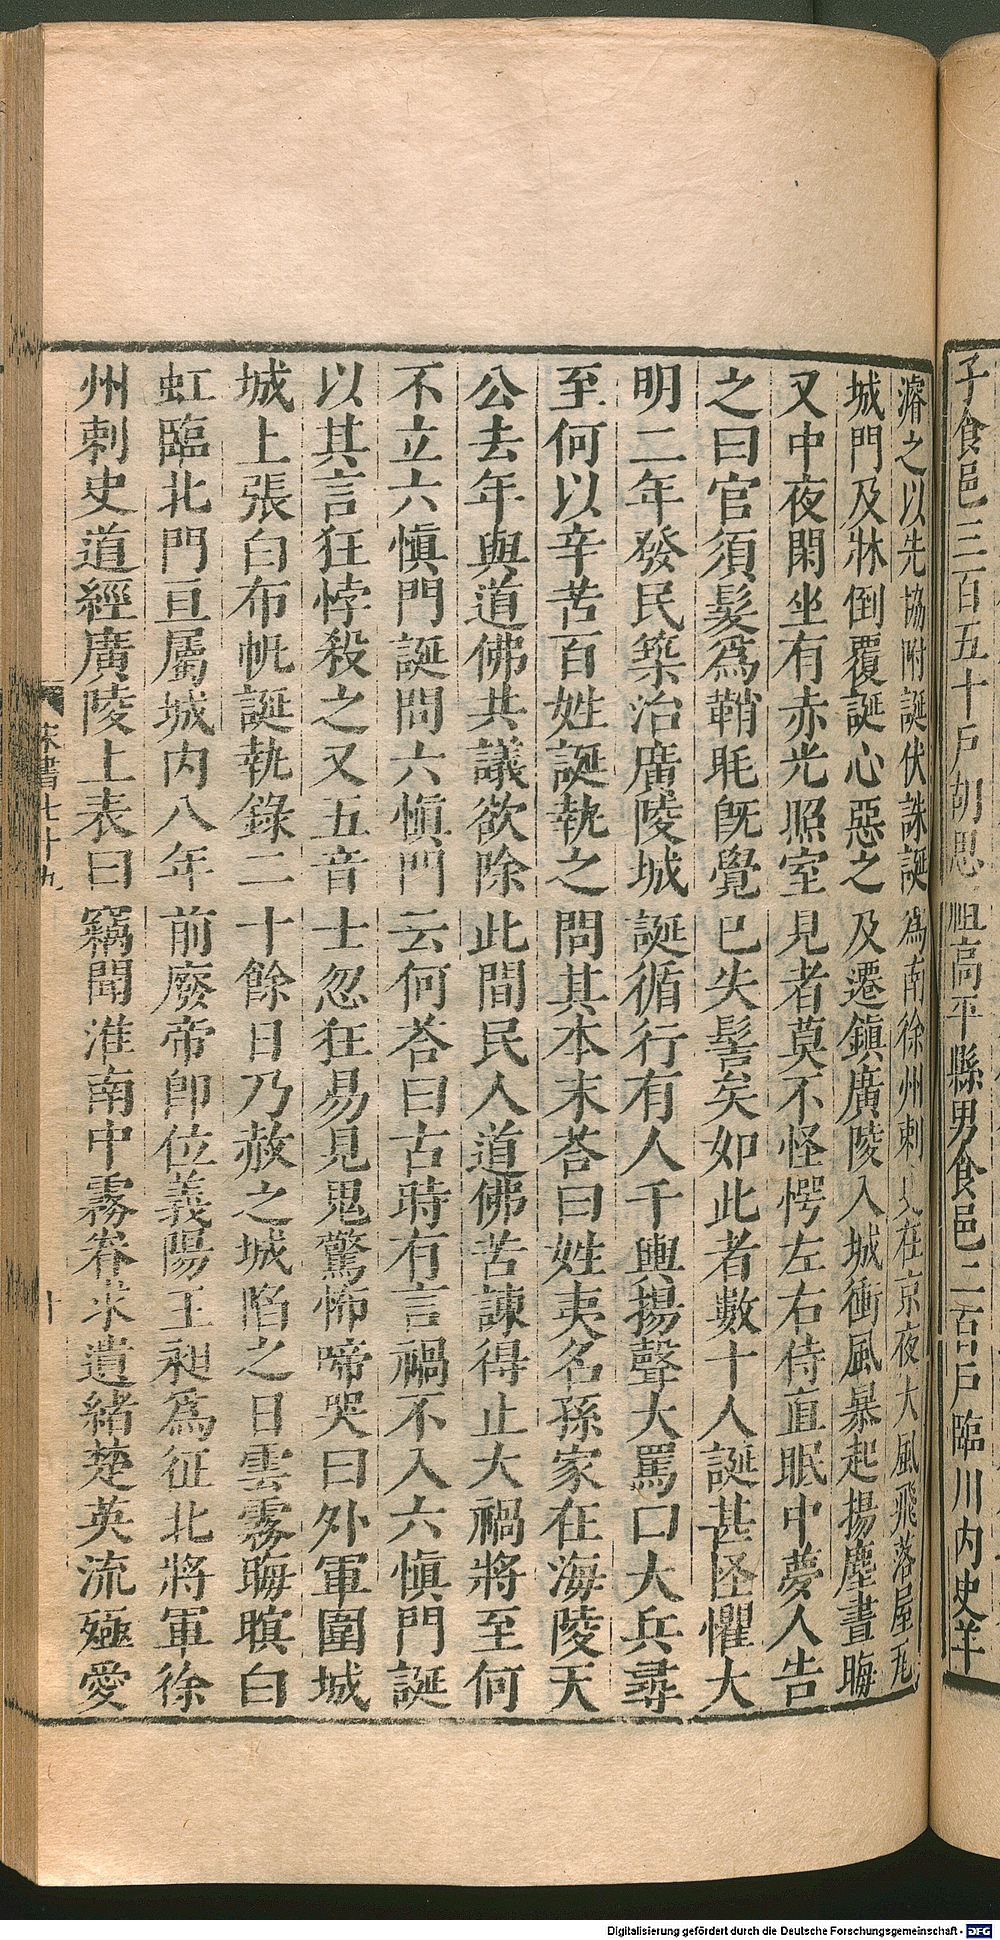 子食邑三百五十戶胡思祖高平縣男食邑二百戶臨川內史羊
濬之以先協附誕伏誅誕爲南徐州刺史在京夜大風飛落屋瓦
城門及牀倒覆誕心惡之及遷鎭廣陵入城衝風暴起揚塵晝晦
又中夜閑坐有赤光照室見者莫不怪愕左右侍直眠中夢人告
之曰官須髮爲鞘毦旣覺已失髻矣如此者數十人誕甚怪懼大
明二年發民築治廣陵城誕循行有人干輿揚聲大罵曰大兵尋
至何以辛苦百姓誕執之問其本末荅曰姓夷名孫家在海陵天
公去年與道佛共議欲除此間民人道佛苦諫得止大禍將至何
不立六愼門誕問六愼門云何荅曰古時有言禍不入六愼門誕
以其言狂悖殺之又五音士忽狂易見鬼驚怖啼哭曰外軍圍城
城上張白布帆誕執錄二十餘日乃赦之城陷之日雲霧晦暝白
虹臨北門亘屬城內八年前廢帝卽位義陽王昶爲征北將軍徐
州刺史道經廣陵上表曰竊聞淮南中霧眷求遺緒楚英流殛愛
宋書七十九
十
Digitalisierung gefördert durch die Deutsche Forschungsgemeinschaft - DFG